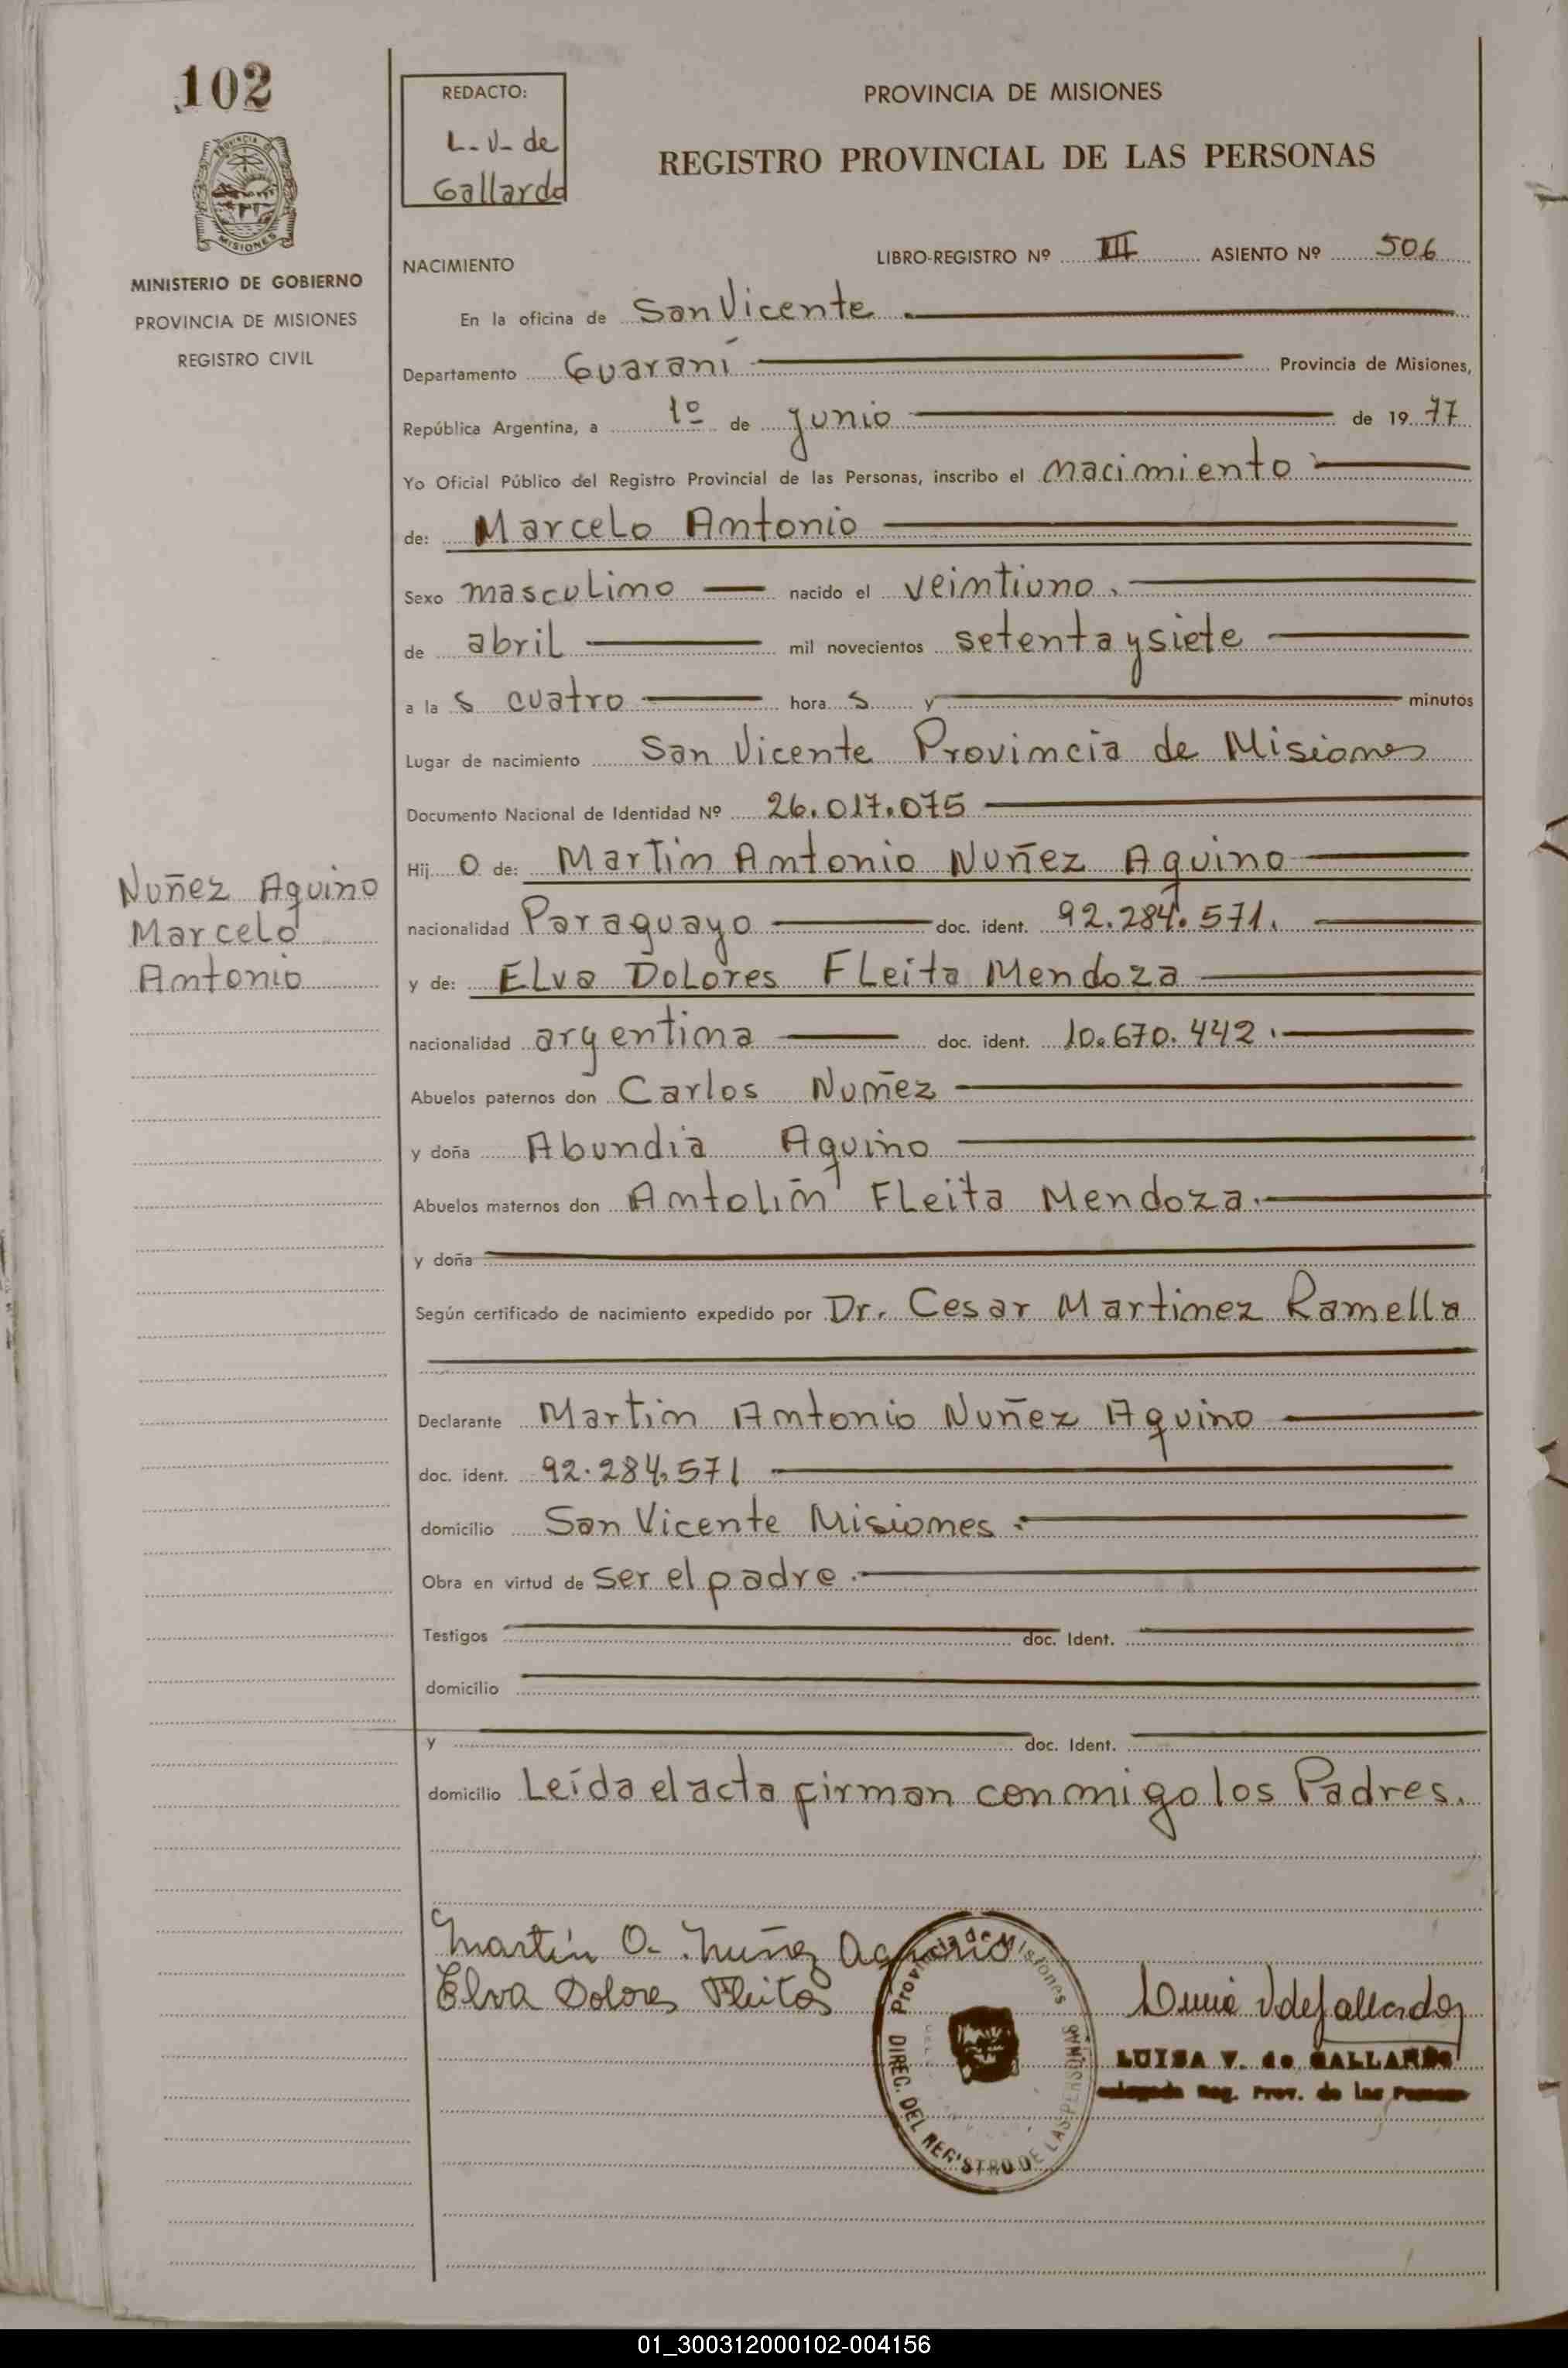 102
PROVINCIA DE MISIONES
MINISTERIO DE GOBIERNO
PROVINCIA DE MISIONES
REGISTRO CIVIL
Nuñez Aquino
Marcelo
Antonio
REDACTO:
L-V- de
Gallardo
PROVINCIA DE MISIONES
REGISTRO PROVINCIAL DE LAS PERSONAS
NACIMIENTO
LIBRO-REGISTRO Nº III ASIENTO Nº 506
En la oficina de San Vicente
Departamento Guaraní Provincia de Misiones,
República Argentina, a 1º de junio de 1977
Yo Oficial Público del Registro Provincial de las Personas, inscribo el nacimiento
de: Marcelo Antonio
Sexo masculino nacido el veintiuno.
de abril mil novecientos setenta y siete
a la s cuatro hora s y minutos
Lugar de nacimiento San Vicente Provincia de Misiones
Documento Nacional de Identidad Nº 26.017.075
Hij o de: Martin Antonio Nuñez Aquino
nacionalidad Paraguayo doc. ident. 92.284.571.
y de: Elva Dolores Fleita Mendoza
nacionalidad argentina doc. ident. 10.670.442.
Abuelos paternos don Carlos Nuñez
y doña Abundia Aquino
Abuelos maternos don Antolín Fleita Mendoza.
y doña
Según certificado de nacimiento expedido por Dr. Cesar Martinez Ramella
Declarante Martin Antonio Nuñez Aquino
doc. ident. 92.284.571
domicilio San Vicente Misiones.
Obra en virtud de ser el padre.
Testigos doc. Ident.
domicilio
y doc. Ident.
domicilio Leída el acta firman conmigo los Padres.
Martín A. Nuñez Aquino
Elva Dolores Fleitas
Provincia de Misiones
DIREC. DEL REGISTRO DE LAS PERSONAS
LUISA V. de GALLARDO
Reg. Prov. de las Personas
01_300312000102-004156